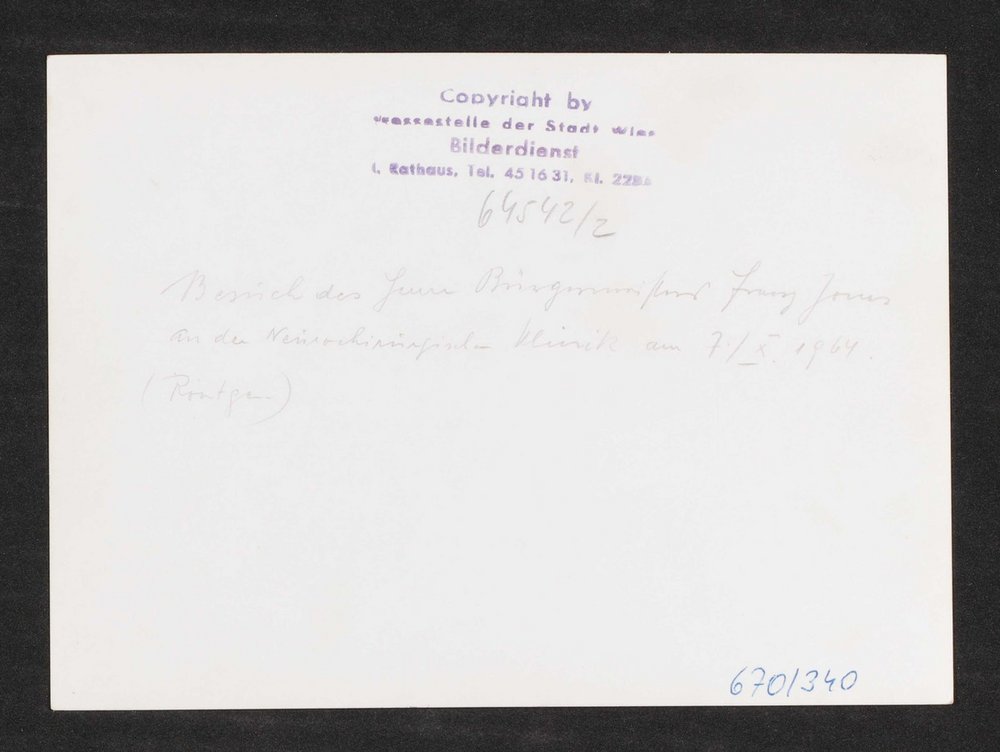 Copyright by
Pressestelle der Stadt Wien
Bilderdienst
I, Rathaus, Tel. 45 16 31, Kl. 2284
64542/2
Besuch des Herrn Bürgermeisters Franz Jonas
an der Neurochirurgischen Klinik am 7./X. 1964.
(Röntgen)
670/340